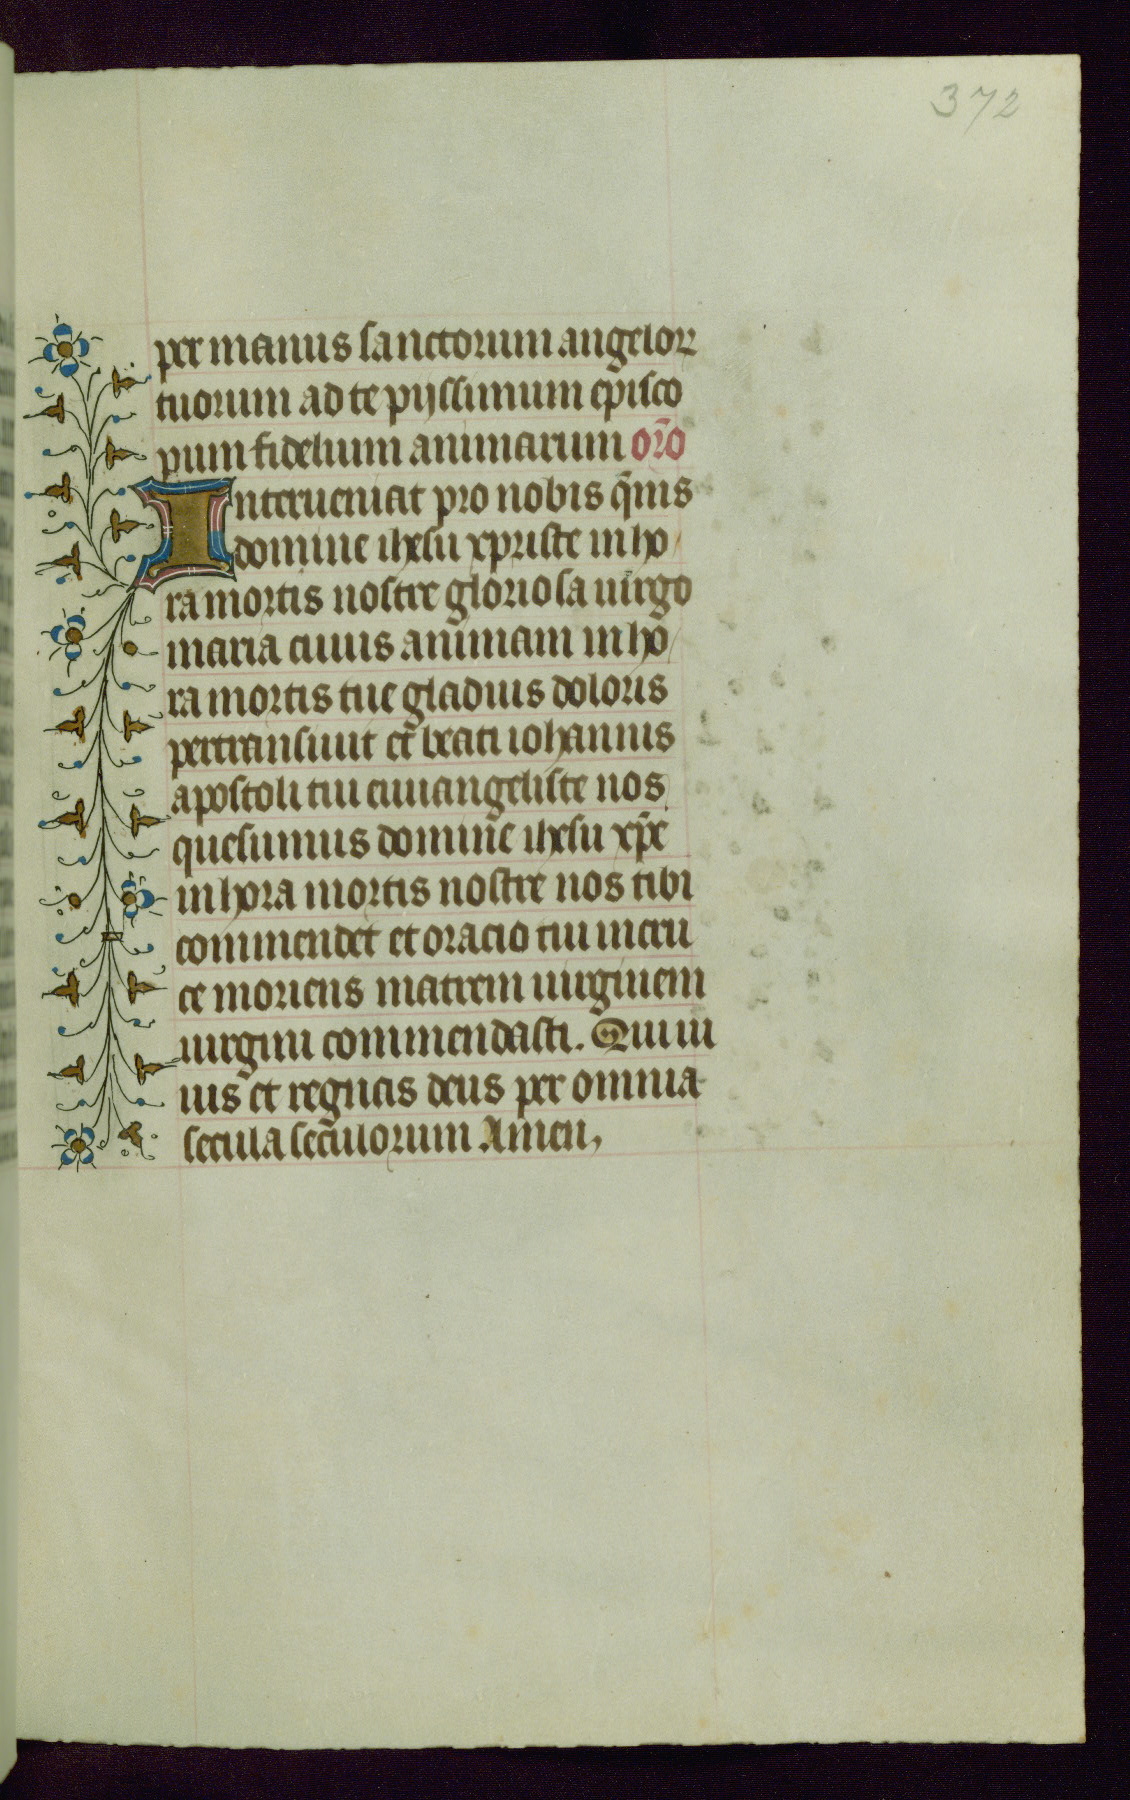 372
per manus sanctorum angelorꝝ
tuorum ad te pijssimum episco
pum fidelium animarum or̄o
Interueniat pro nobis q̄ms
domine ihesu xpriste in ho
ra mortis nostre gloriosa uirgo
maria cuuis animam in ho
ra mortis tue gladius doloris
pertransiuit et beati iohannis
apostoli tui euuangeliste nos
quesumus domine ihesu xp̄e
in hora mortis nostre nos tibi
commendet et oracio tui in cru
ce moriens matrem uirginem
uirgini commendasti. Qui ui
uis et regnas deus per omnia
secula seculorum Amen,